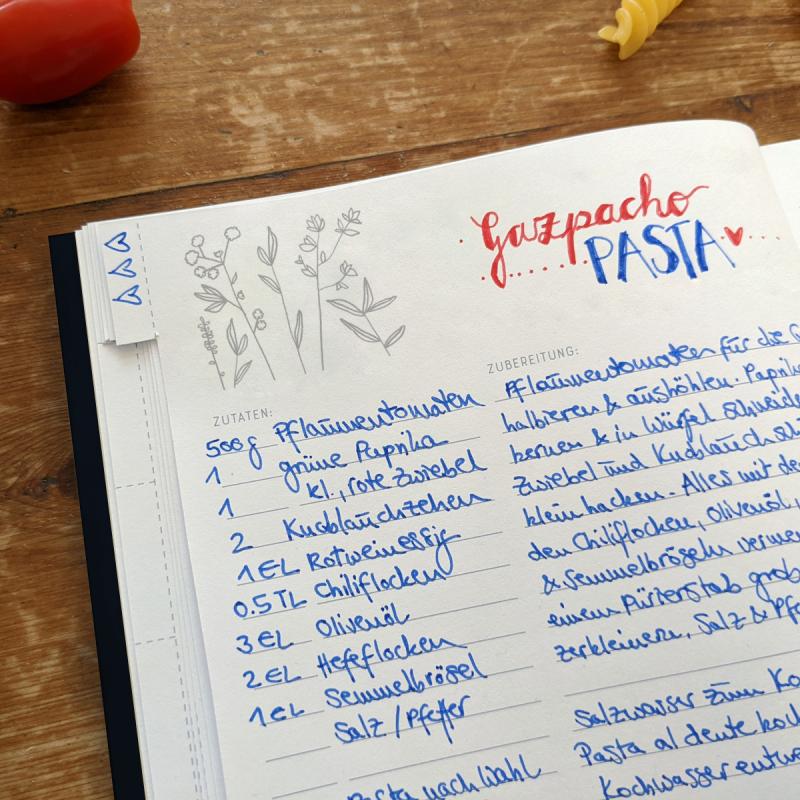 Gazpacho
PASTA
ZUTATEN:
500 g Pflaumentomaten
1 grüne Paprika
1 kl., rote Zwiebel
2 Knoblauchzehen
1 EL Rotweinessig
0.5 TL Chiliflocken
3 EL Olivenöl
2 EL Hefeflocken
1 EL Semmelbrösel
Salz / Pfeffer
Pasta nach Wahl
ZUBEREITUNG:
Pflaumentomaten für die
halbieren & aushöhlen. Paprika
kernen & in Würfel schneide
Zwiebel und Knoblauch
klein hacken. Alles mit
den Chiliflocken, Olivenöl,
& Semmelbröseln
einem Pürierstab grob
zerkleinern, Salz &
Salzwasser zum
Pasta al dente
Kochwasser